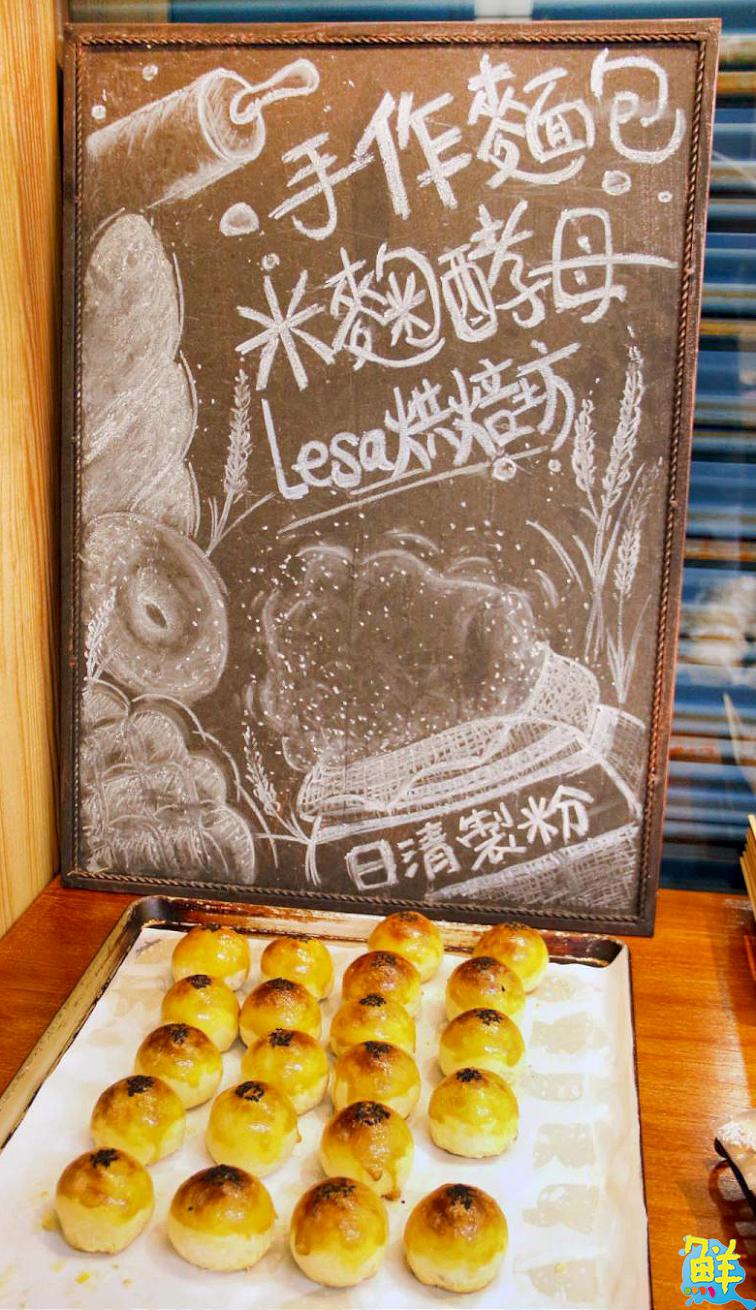 手作麵包
米麴酵母
Lesa烘焙坊
日清製粉
鮮